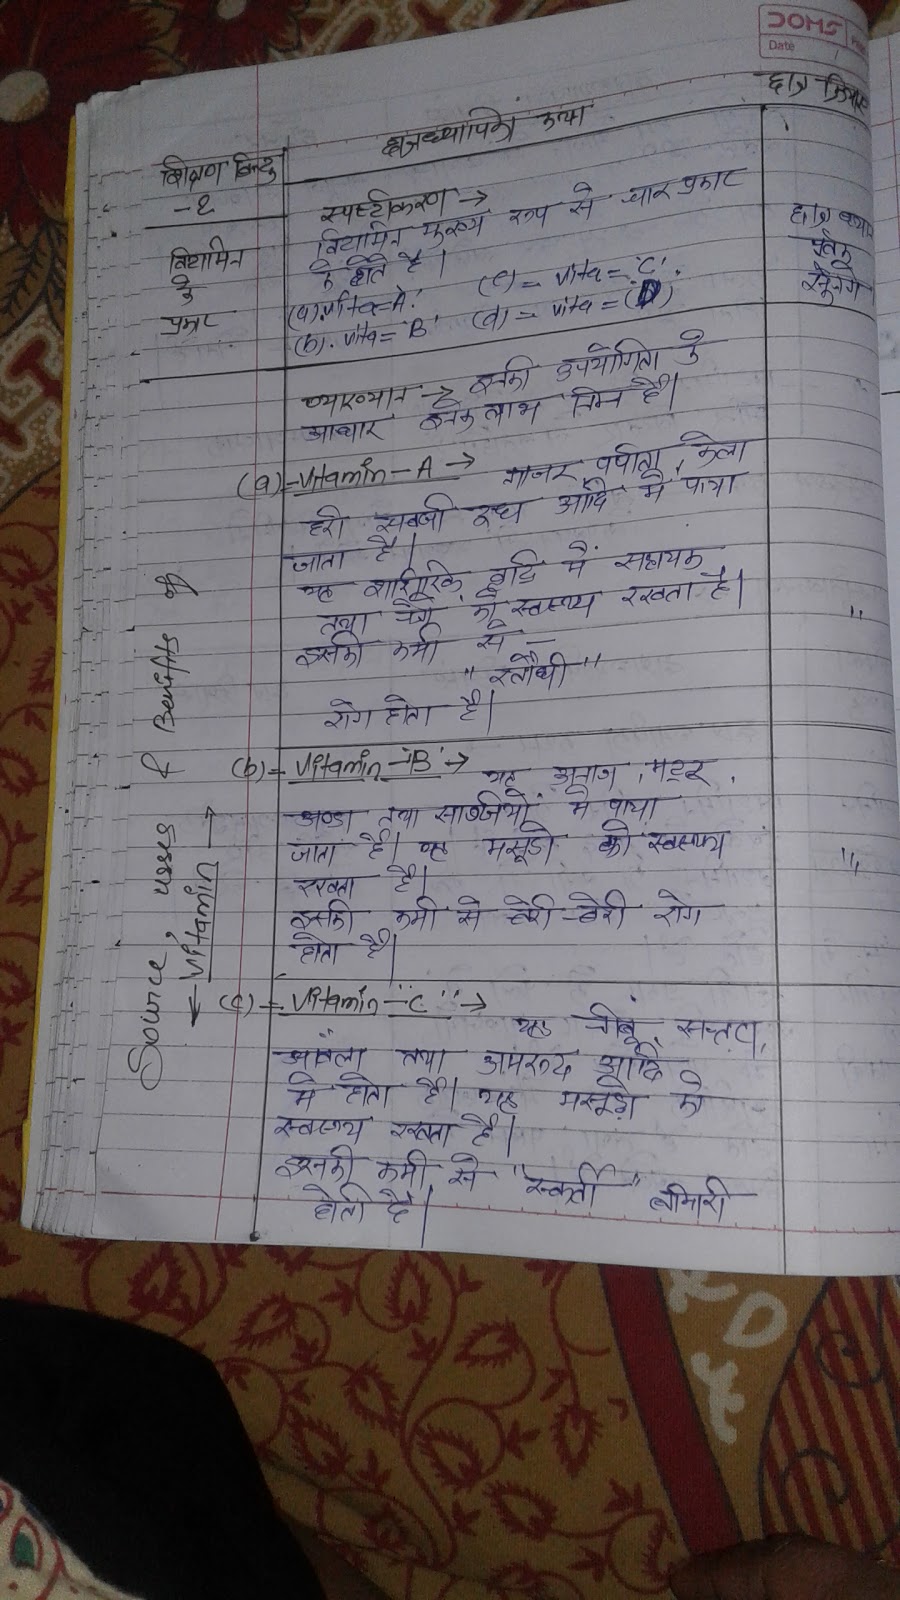 DOMS
Date
शिक्षण बिन्दु
-2
छात्राध्यापिका कथन
छात्र क्रियाएं
विटामिन
के
प्रकार
स्पष्टीकरण →
विटामिन मुख्य रूप से चार प्रकार
के होते है।
(a). vita = 'A'.
(c) = vita = 'C'.
(b). vita = 'B'
(d) = vita = (D)
छात्र
सुनेंगे
व्याख्यान → इनकी उपयोगिता के
आधार इनके लाभ निम्न है।
(a) = Vitamin - A →
गाजर, पपीता, केला
हरी सब्जी दूध आदि में पाया
जाता है।
यह शारीरिक वृद्धि में सहायक
तथा को स्वस्थ्य रखता है।
इसकी कमी से -
"रतौंधी"
रोग होता है।
"
(b) = Vitamin - 'B' →
यह अनाज, मटर,
अण्डा तथा सब्जियों में पाया
जाता है। यह मसूडो को स्वस्थ्य
रखता है।
इसकी कमी से बेरी-बेरी रोग
होता है।
"
(c) = Vitamin - "C" →
यह नीबू, सन्तरा,
आंवला तथा अमरूद आदि
मे होता है। यह मसूड़ो को
स्वस्थ्य रखता है।
इसकी कमी से "स्कर्वी" बीमारी
होती है।
Source, usses & Benifits of
← Vitamin →